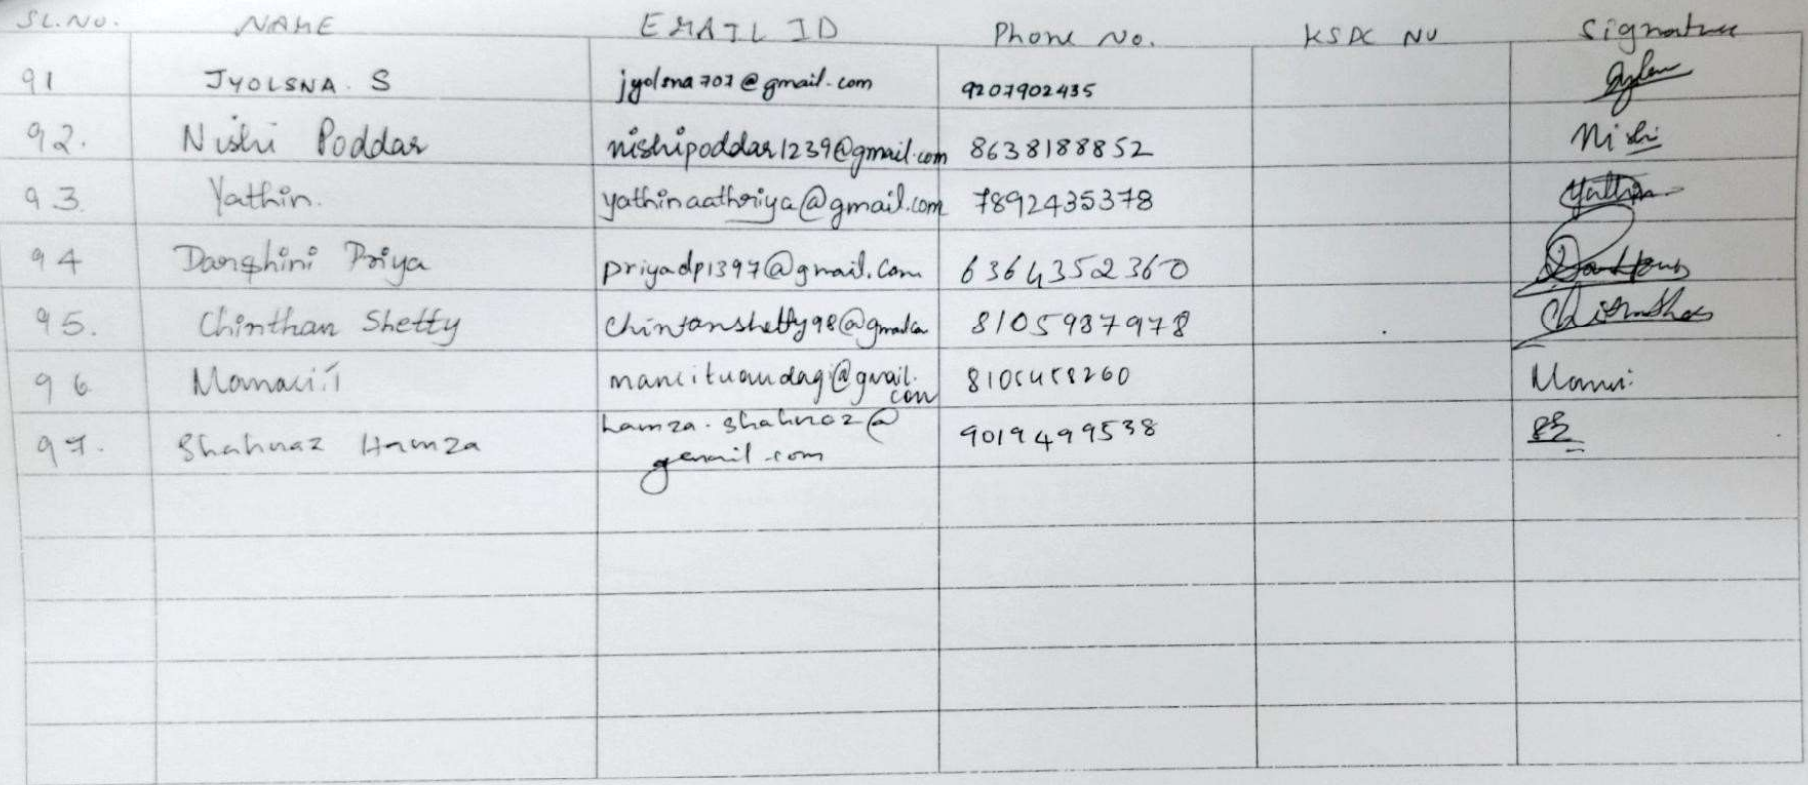 SL.NO. NAME EMAIL ID Phone No. KSPC NO Signature
91 JYOLSNA. S jyolsna707@gmail.com 9207902435
92. Nishi Poddar nishipoddar1239@gmail.com 8638188852 Nishi
93. Yathin. yathinaathriya@gmail.com 7892435378 Yathin
94 Darshini Priya priyadp1397@gmail.com 6364352360
95. Chinthan Shetty chintanshetty98@gmail.com 8105987978
96 @gmail.
com
97. Shahnaz Hamza hamza.shahnaz@ 9019499538
gmail.com